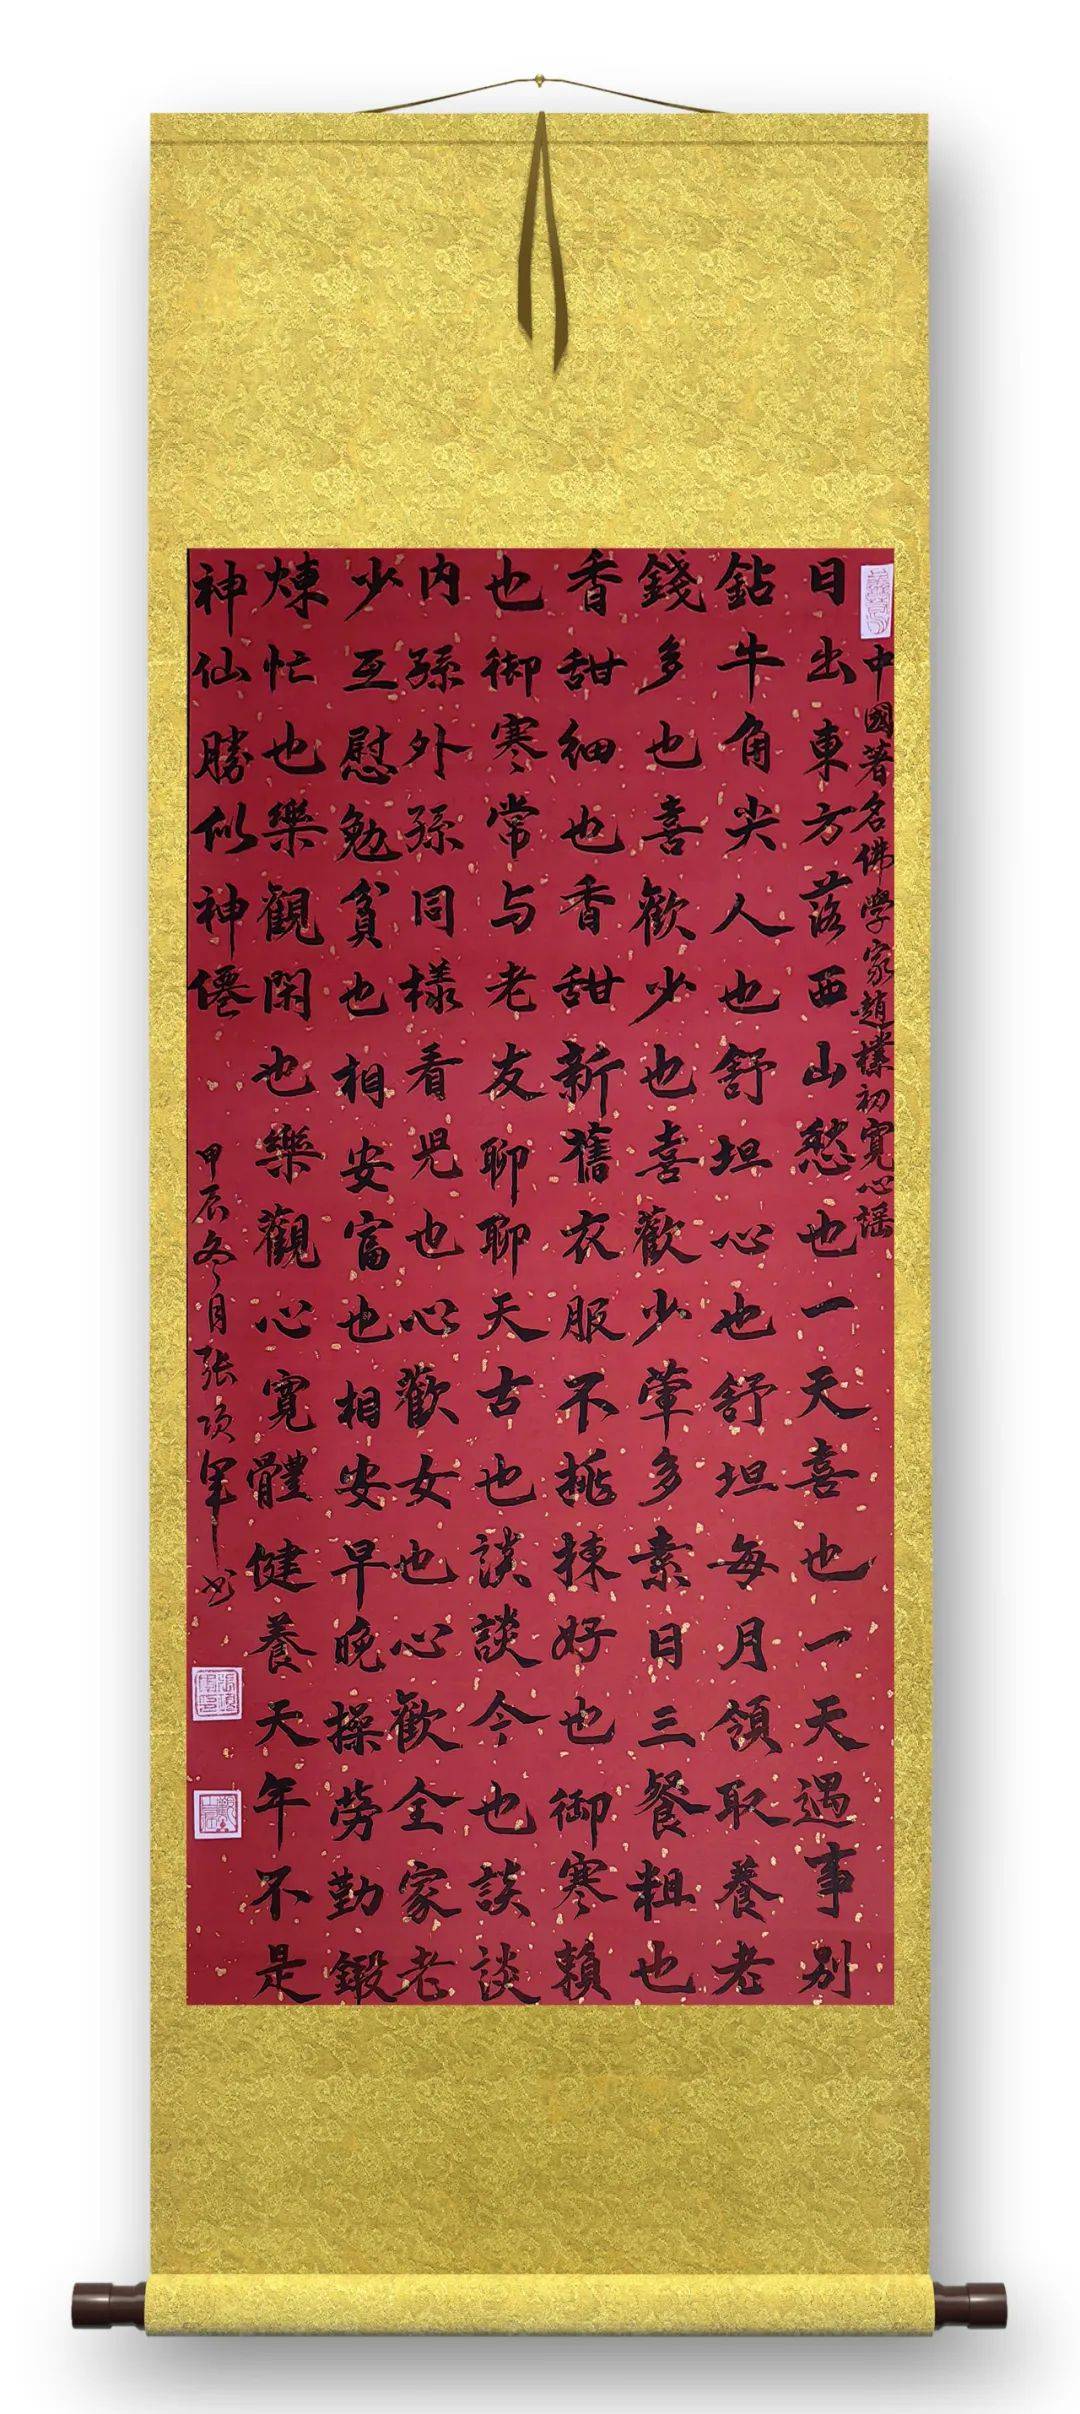 中國著名佛学家趙樸初寬心謡
日出東方落西山愁也一天喜也一天遇事別
鉆牛角尖人也舒坦心也舒坦每月領取養老
錢多也喜歡少也喜歡少葷多素日三餐粗也
香甜細也香甜新舊衣服不挑揀好也御寒賴
也御寒常与老友聊聊天古也談談今也談談
内孫外孫同樣看児也心歡女也心歡全家老
少互慰勉貧也相安富也相安早晚操勞勤鍛
煉忙也樂観閑也樂觀心寬體健養天年不是
神仙勝似神僊
甲辰冬月張項軍书